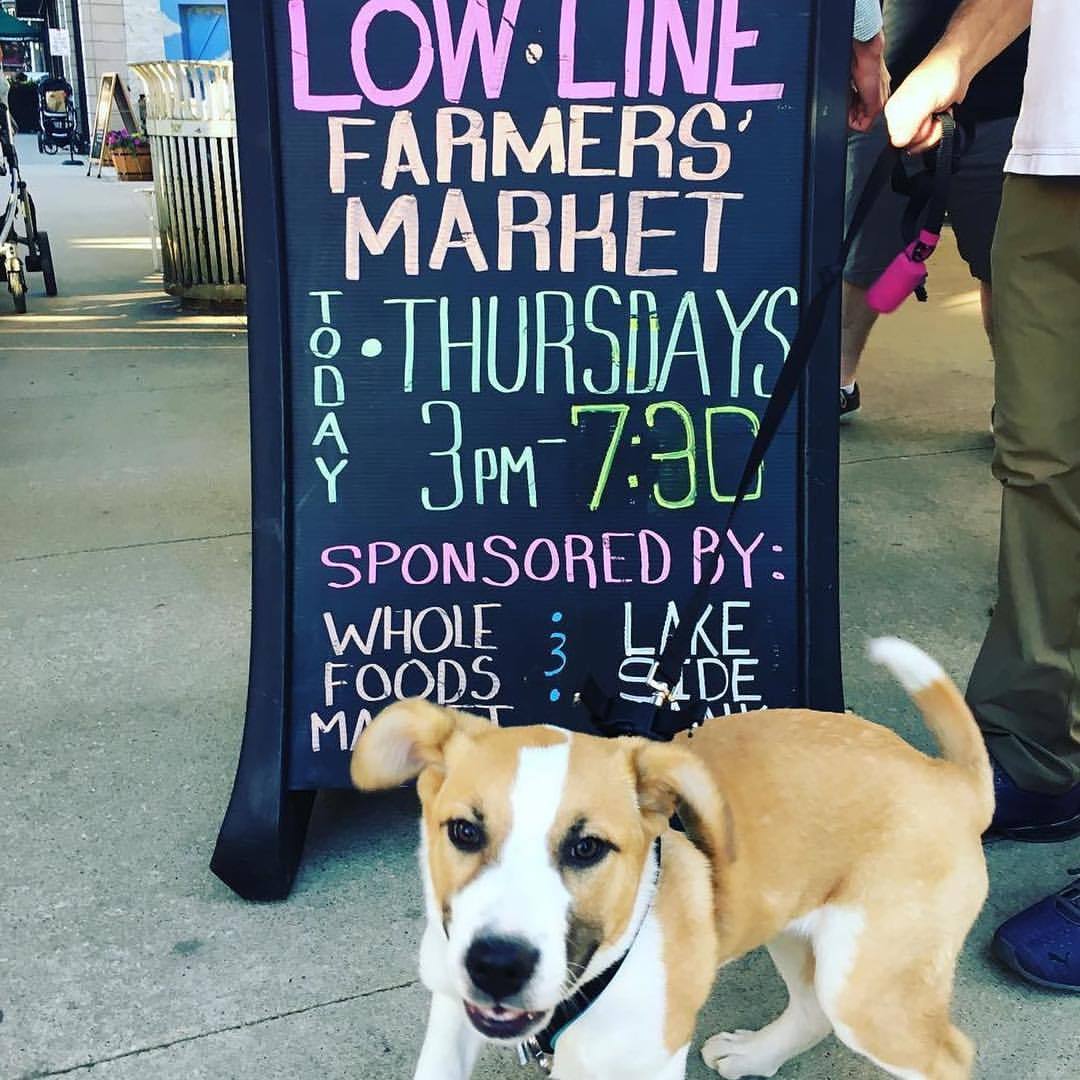 LOW•LINE
FARMERS'
MARKET
TODAY
• THURSDAYS
3PM-7:30
SPONSORED BY:
WHOLE
FOODS
LAKE
SIDE